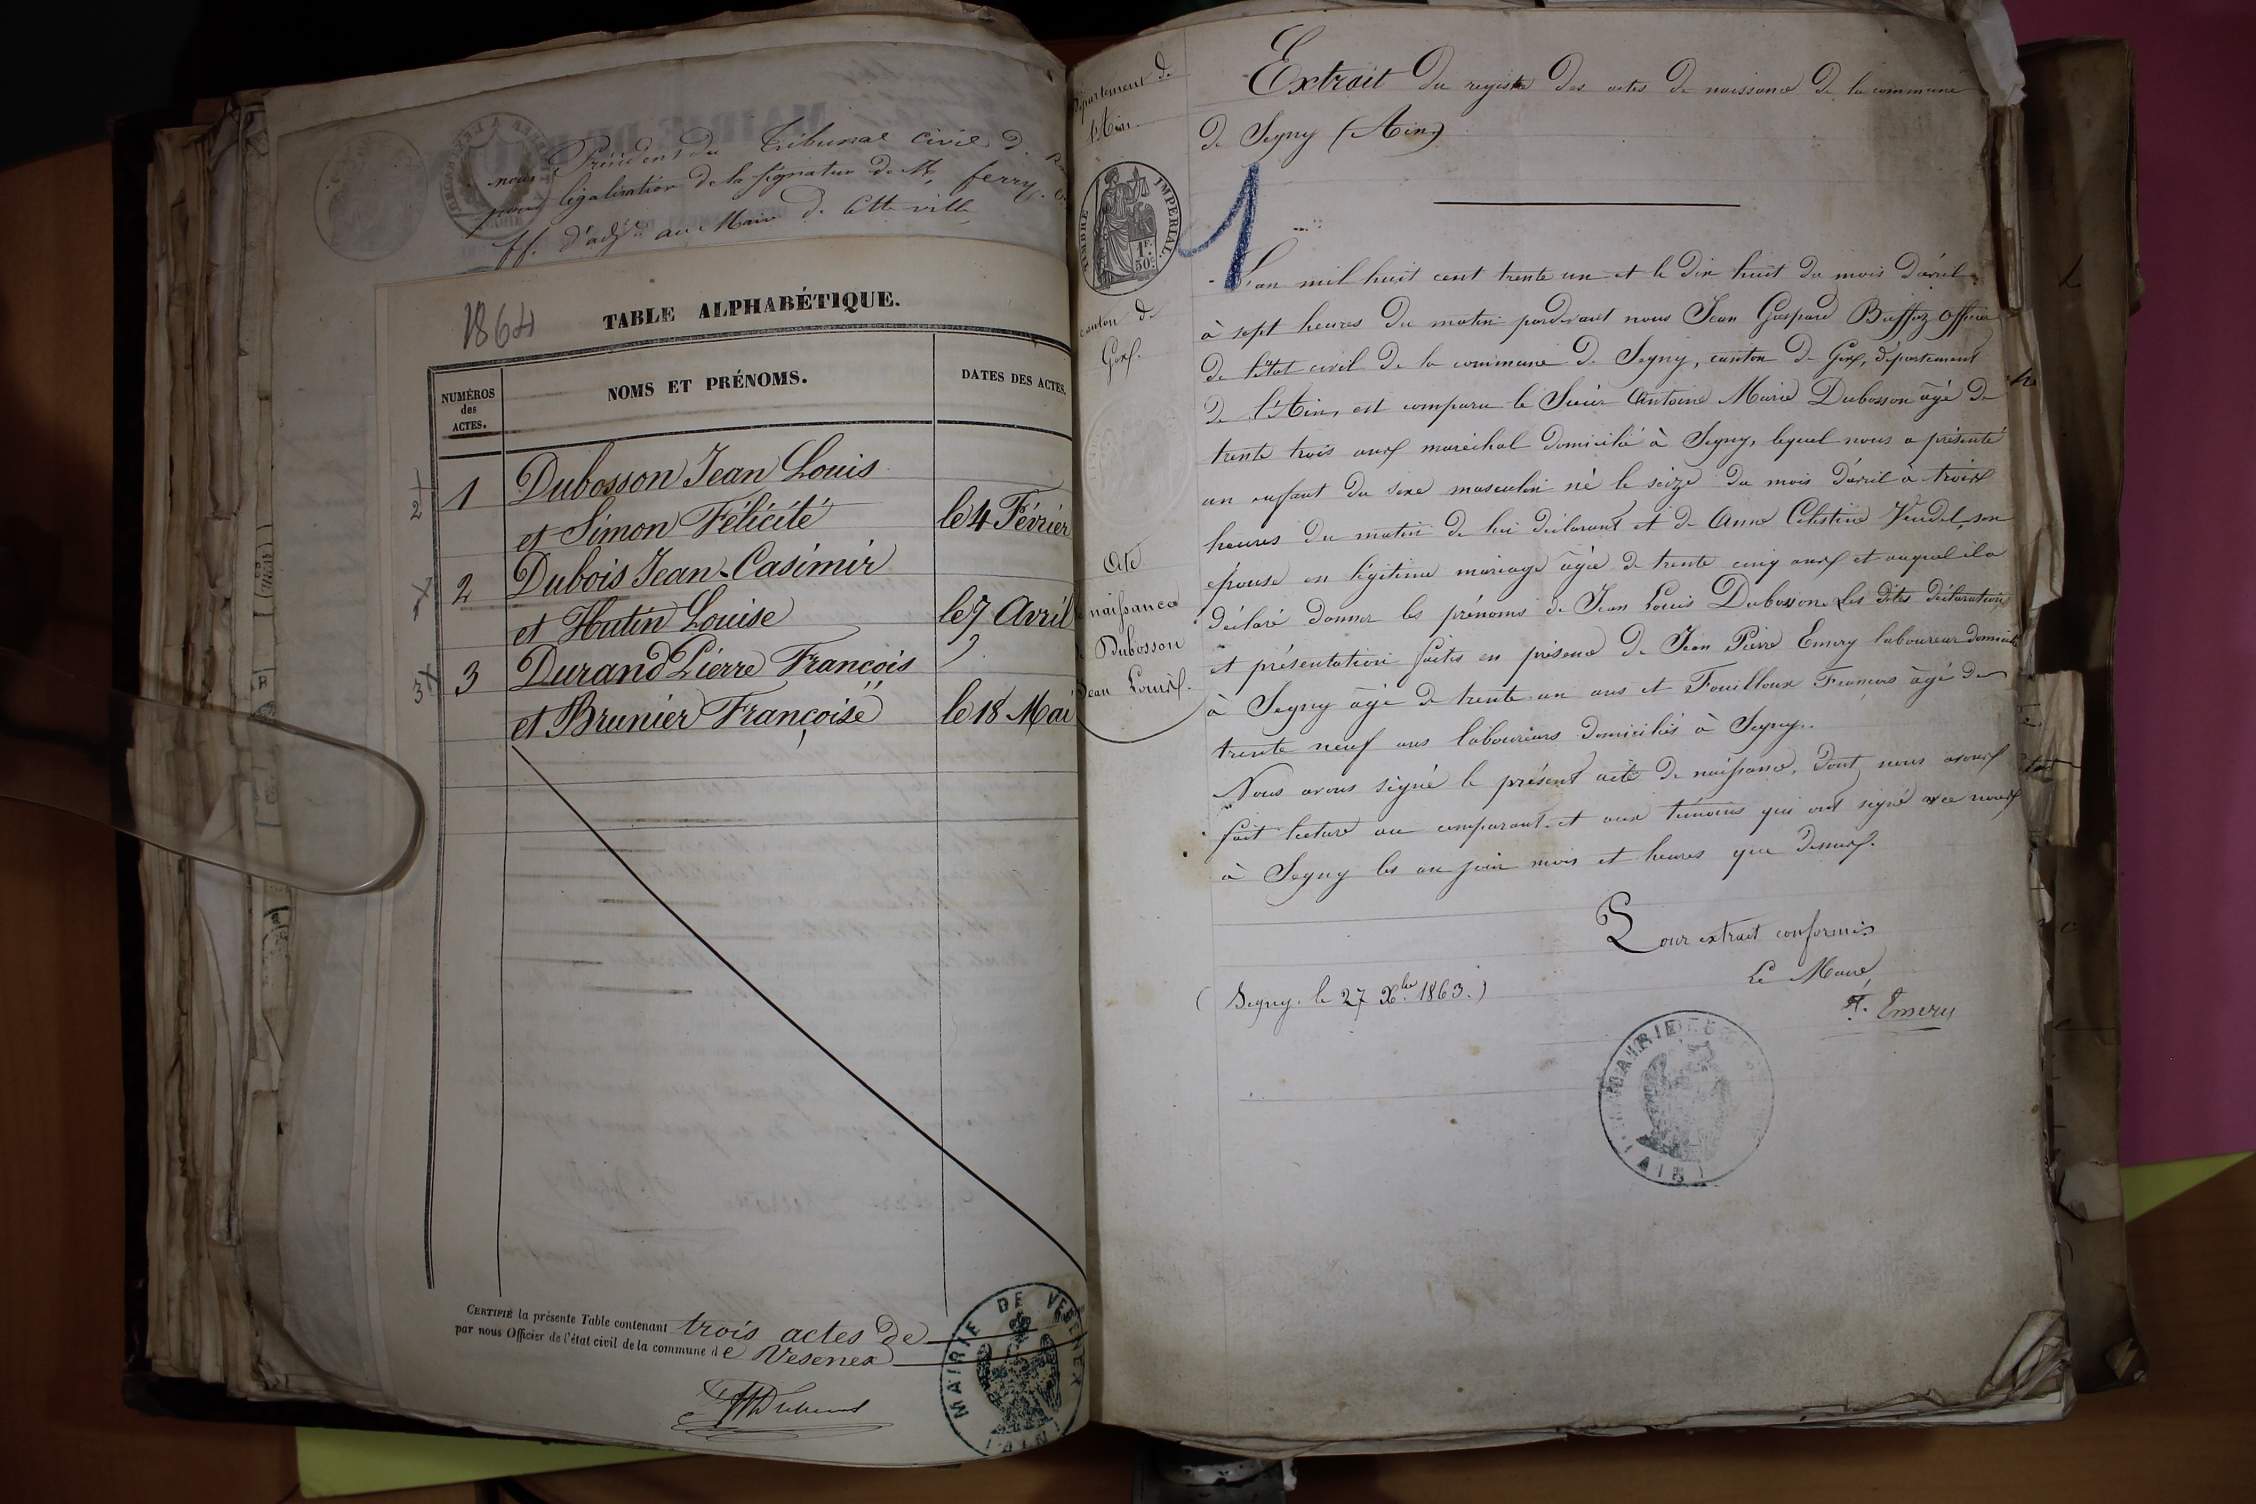 Président du Tribunal civil de
nous
pour légalisation de la signature de Mr. ferry
ff. d'adjt au Maire de cette ville
1864
TABLE ALPHABÉTIQUE.
NUMÉROS des ACTES.
NOMS ET PRÉNOMS.
DATES DES ACTES.
1 Dubosson Jean Louis
2
et Simon Félicité le 4 Février
2 Dubois Jean-Casimir
et Hutin Louise le 7 Avril
3 Durand Pierre François
3
et Brunier Françoise le 18 Mai
CERTIFIÉ la présente Table contenant trois actes de
par nous Officier de l'état civil de la commune de Vesenex
MAIRIE DE VESENEX
(AIN)
Département de
l'Ain
TIMBRE IMPÉRIAL
1 F.
50 C.
canton de
Gex.
Acte
naissance
Dubosson
Jean Louis.
Extrait du registre des actes de naissance de la commune
de Segny (Ain)
1
L'an mil huit cent trente un et le dix huit du mois d'avril
à sept heures du matin pardevant nous Jean Gaspard Buffoz officier
de l'état civil de la commune de Segny, canton de Gex, département
de l'Ain, est comparu le Sieur Antoine Marie Dubosson âgé de
trente trois ans maréchal domicilié à Segny, lequel nous a présenté
un enfant du sexe masculin né le seize du mois d'avril à trois
heures du matin de lui déclarant et de Anne Célestine son
épouse en légitime mariage âgée de trente cinq ans et auquel il a
déclaré donner les prénoms de Jean Louis Dubosson. Les dites déclaration
et présentation faites en présence de Jean Pierre Emery laboureur domicilié
à Segny âgé de trente un ans et Fouilloux François âgé de
trente neuf ans laboureurs domiciliés à Segny.
Nous avons signé le présent acte de naissance, dont nous avons
fait lecture au comparant et aux témoins qui ont signé avec nous
à Segny les an jour mois et heures que dessus.
Pour extrait conforme
Le Maire,
(Segny. le 27 Xbre 1863.)
Emery
MAIRIE DE
(AIN)